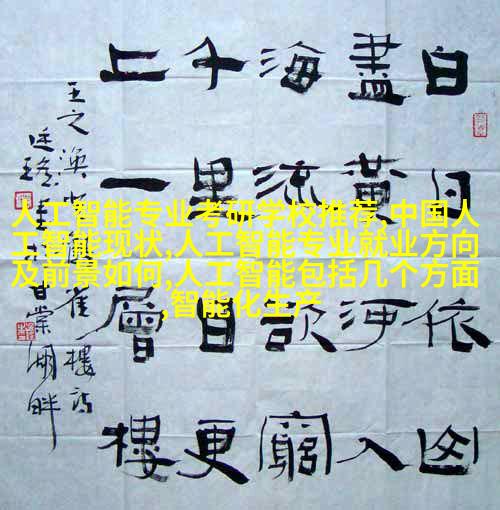 白日依山
盡黃河入
海流欲窮
千里目更
上一層樓
王之渙雀樓詩
甘棠湖畔
人工智能专业考研学校推荐,中国人
工智能现状,人工智能专业就业方向
及前景如何,人工智能包括几个方面
,智能化生产